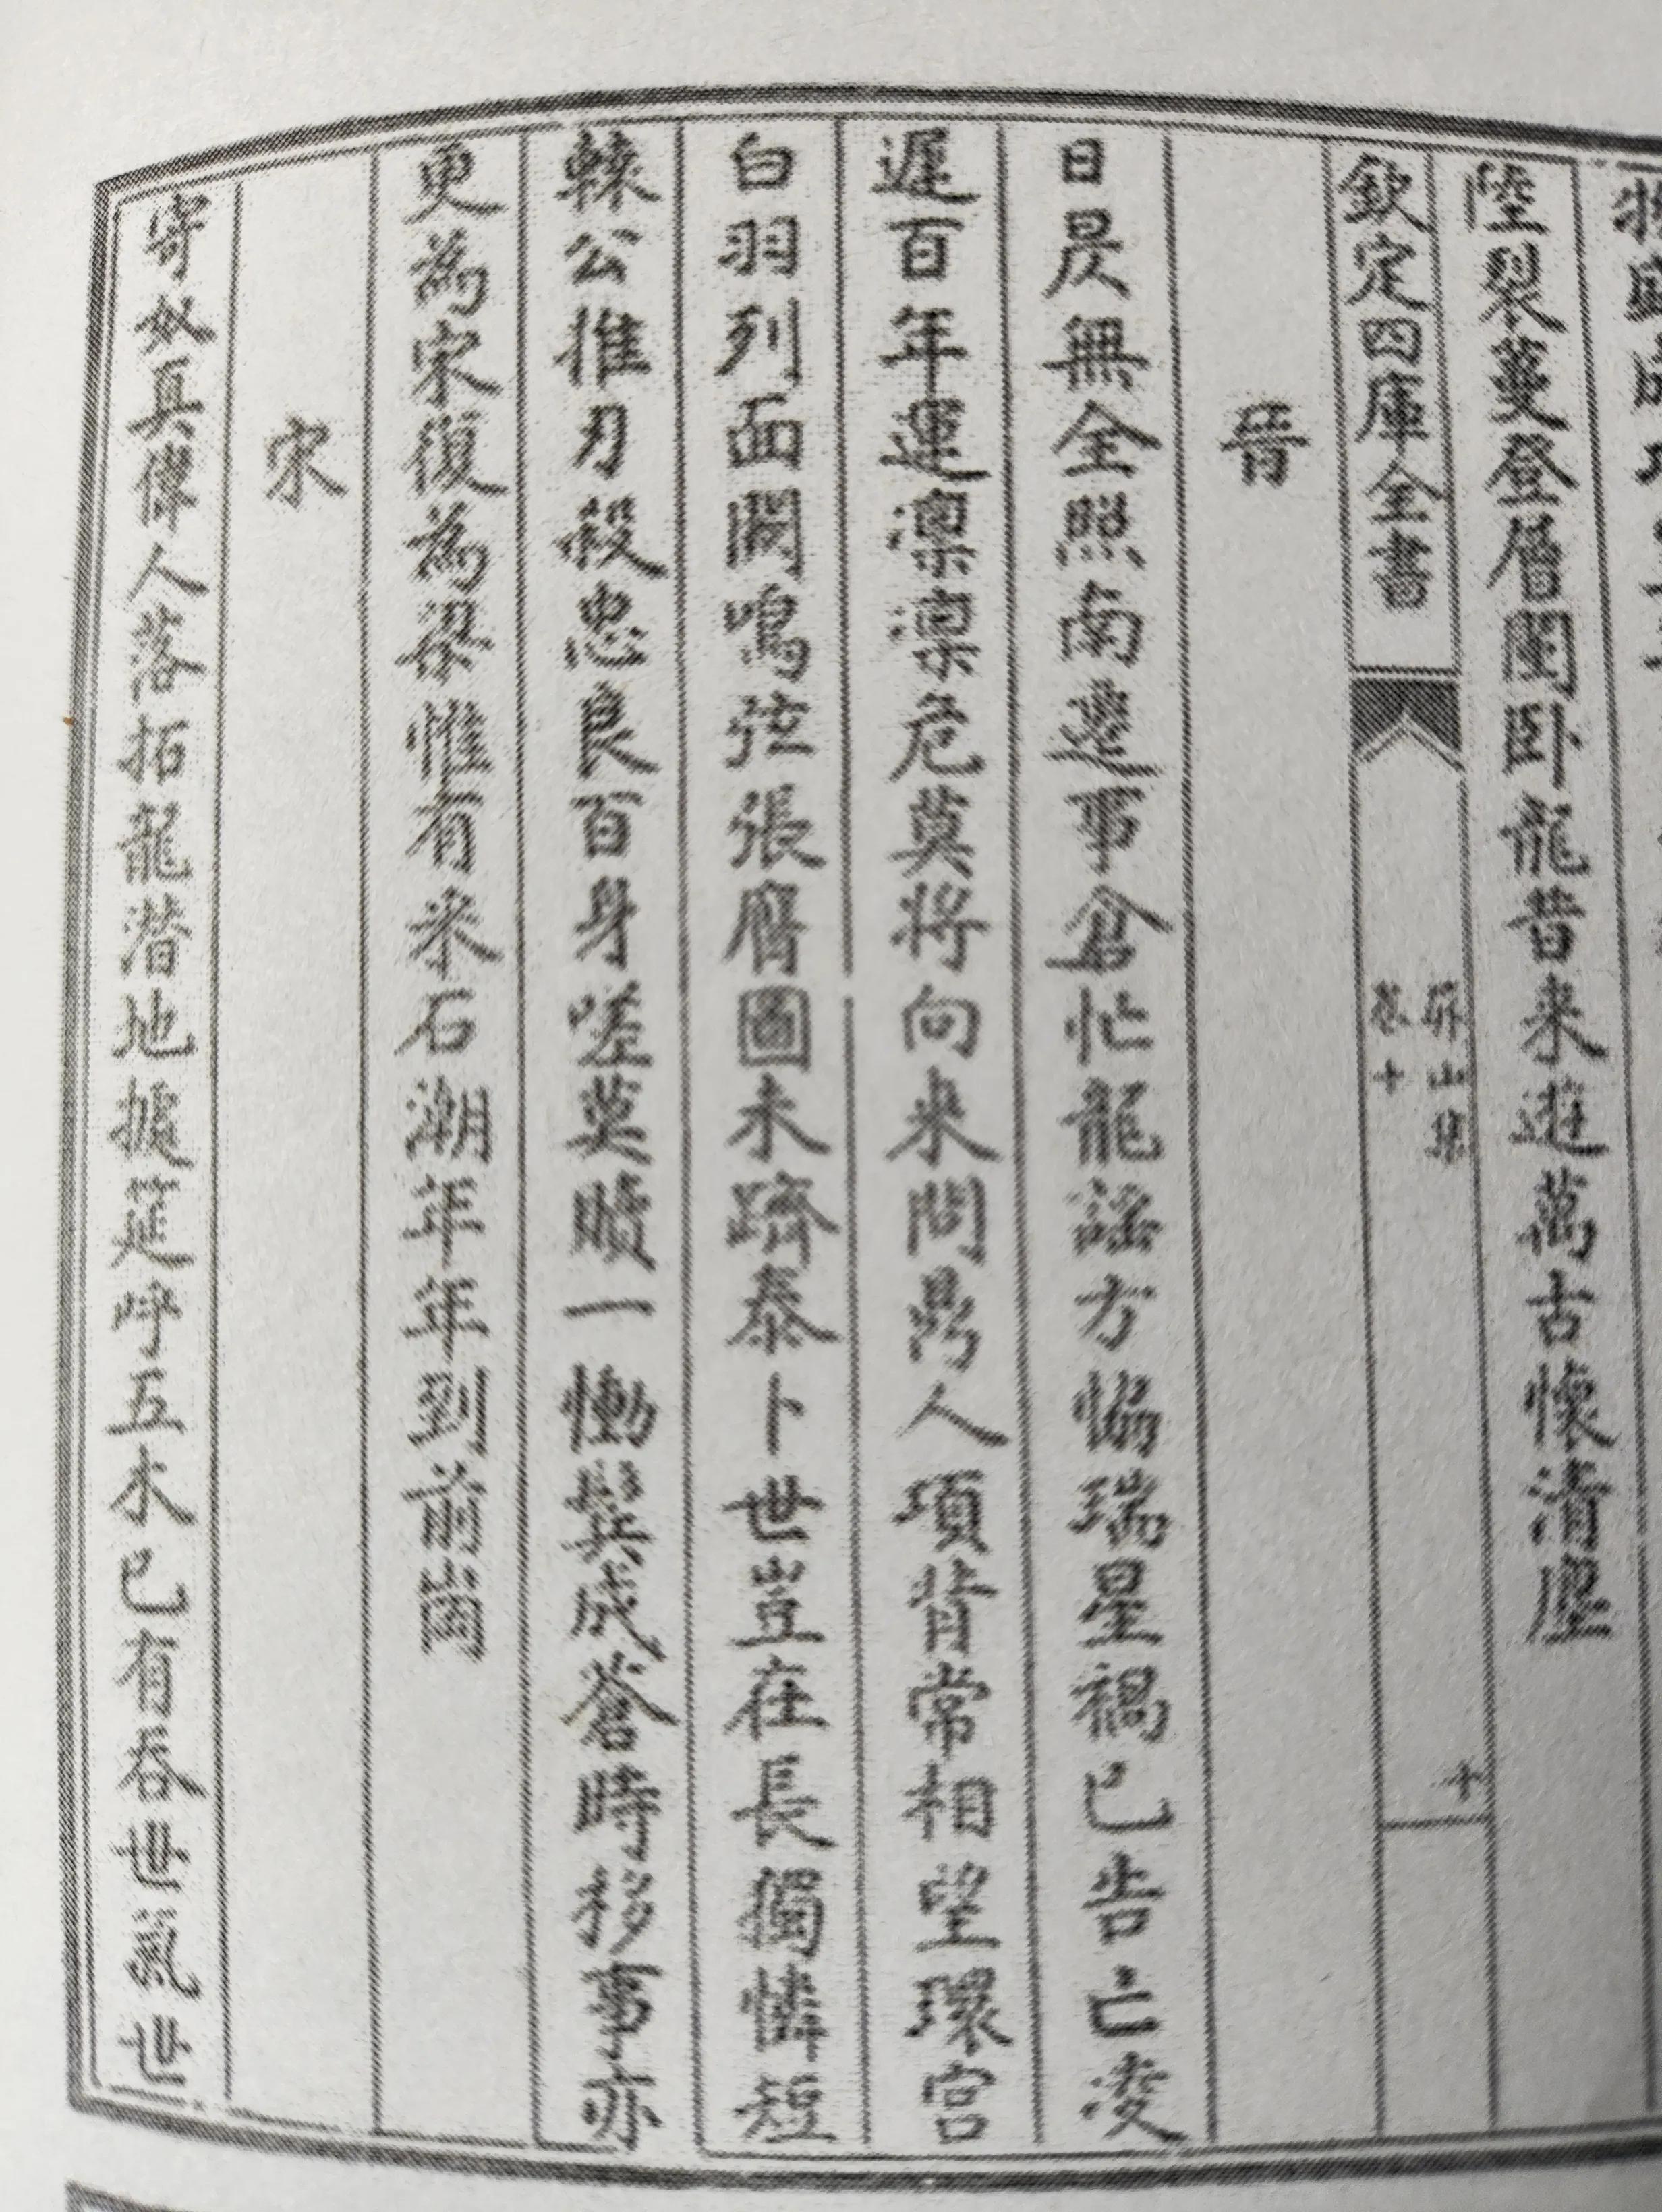 陸裂蔓登層闉卧龍昔来遊萬古懷清塵
欽定四庫全書
屏山集
卷十
十
晉
日昃無全照南遷事倉忙龍謡方慆瑞星禍已告亡淩
遲百年運凛凛危莫將向来問鼎人項背常相望環宫
白羽列面闕鳴弦張膺圖未躋泰卜世豈在長獨憐短
轅公推刃殺忠良百身嗟莫贖一慟鬂成蒼時移事亦
更為宋復為梁惟有来石潮年年到前崗
宋
寄奴真偉人落拓龍潜地據筵呼五木已有吞世氣世